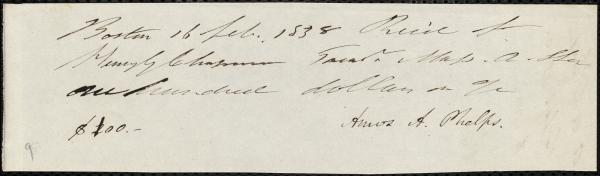 Boston 16 feb. 1838 Recd. of
Henry G Chapman Treasr. Mass. A. S.
one hundred dollars on %
$100.- Amos A. Phelps.
9